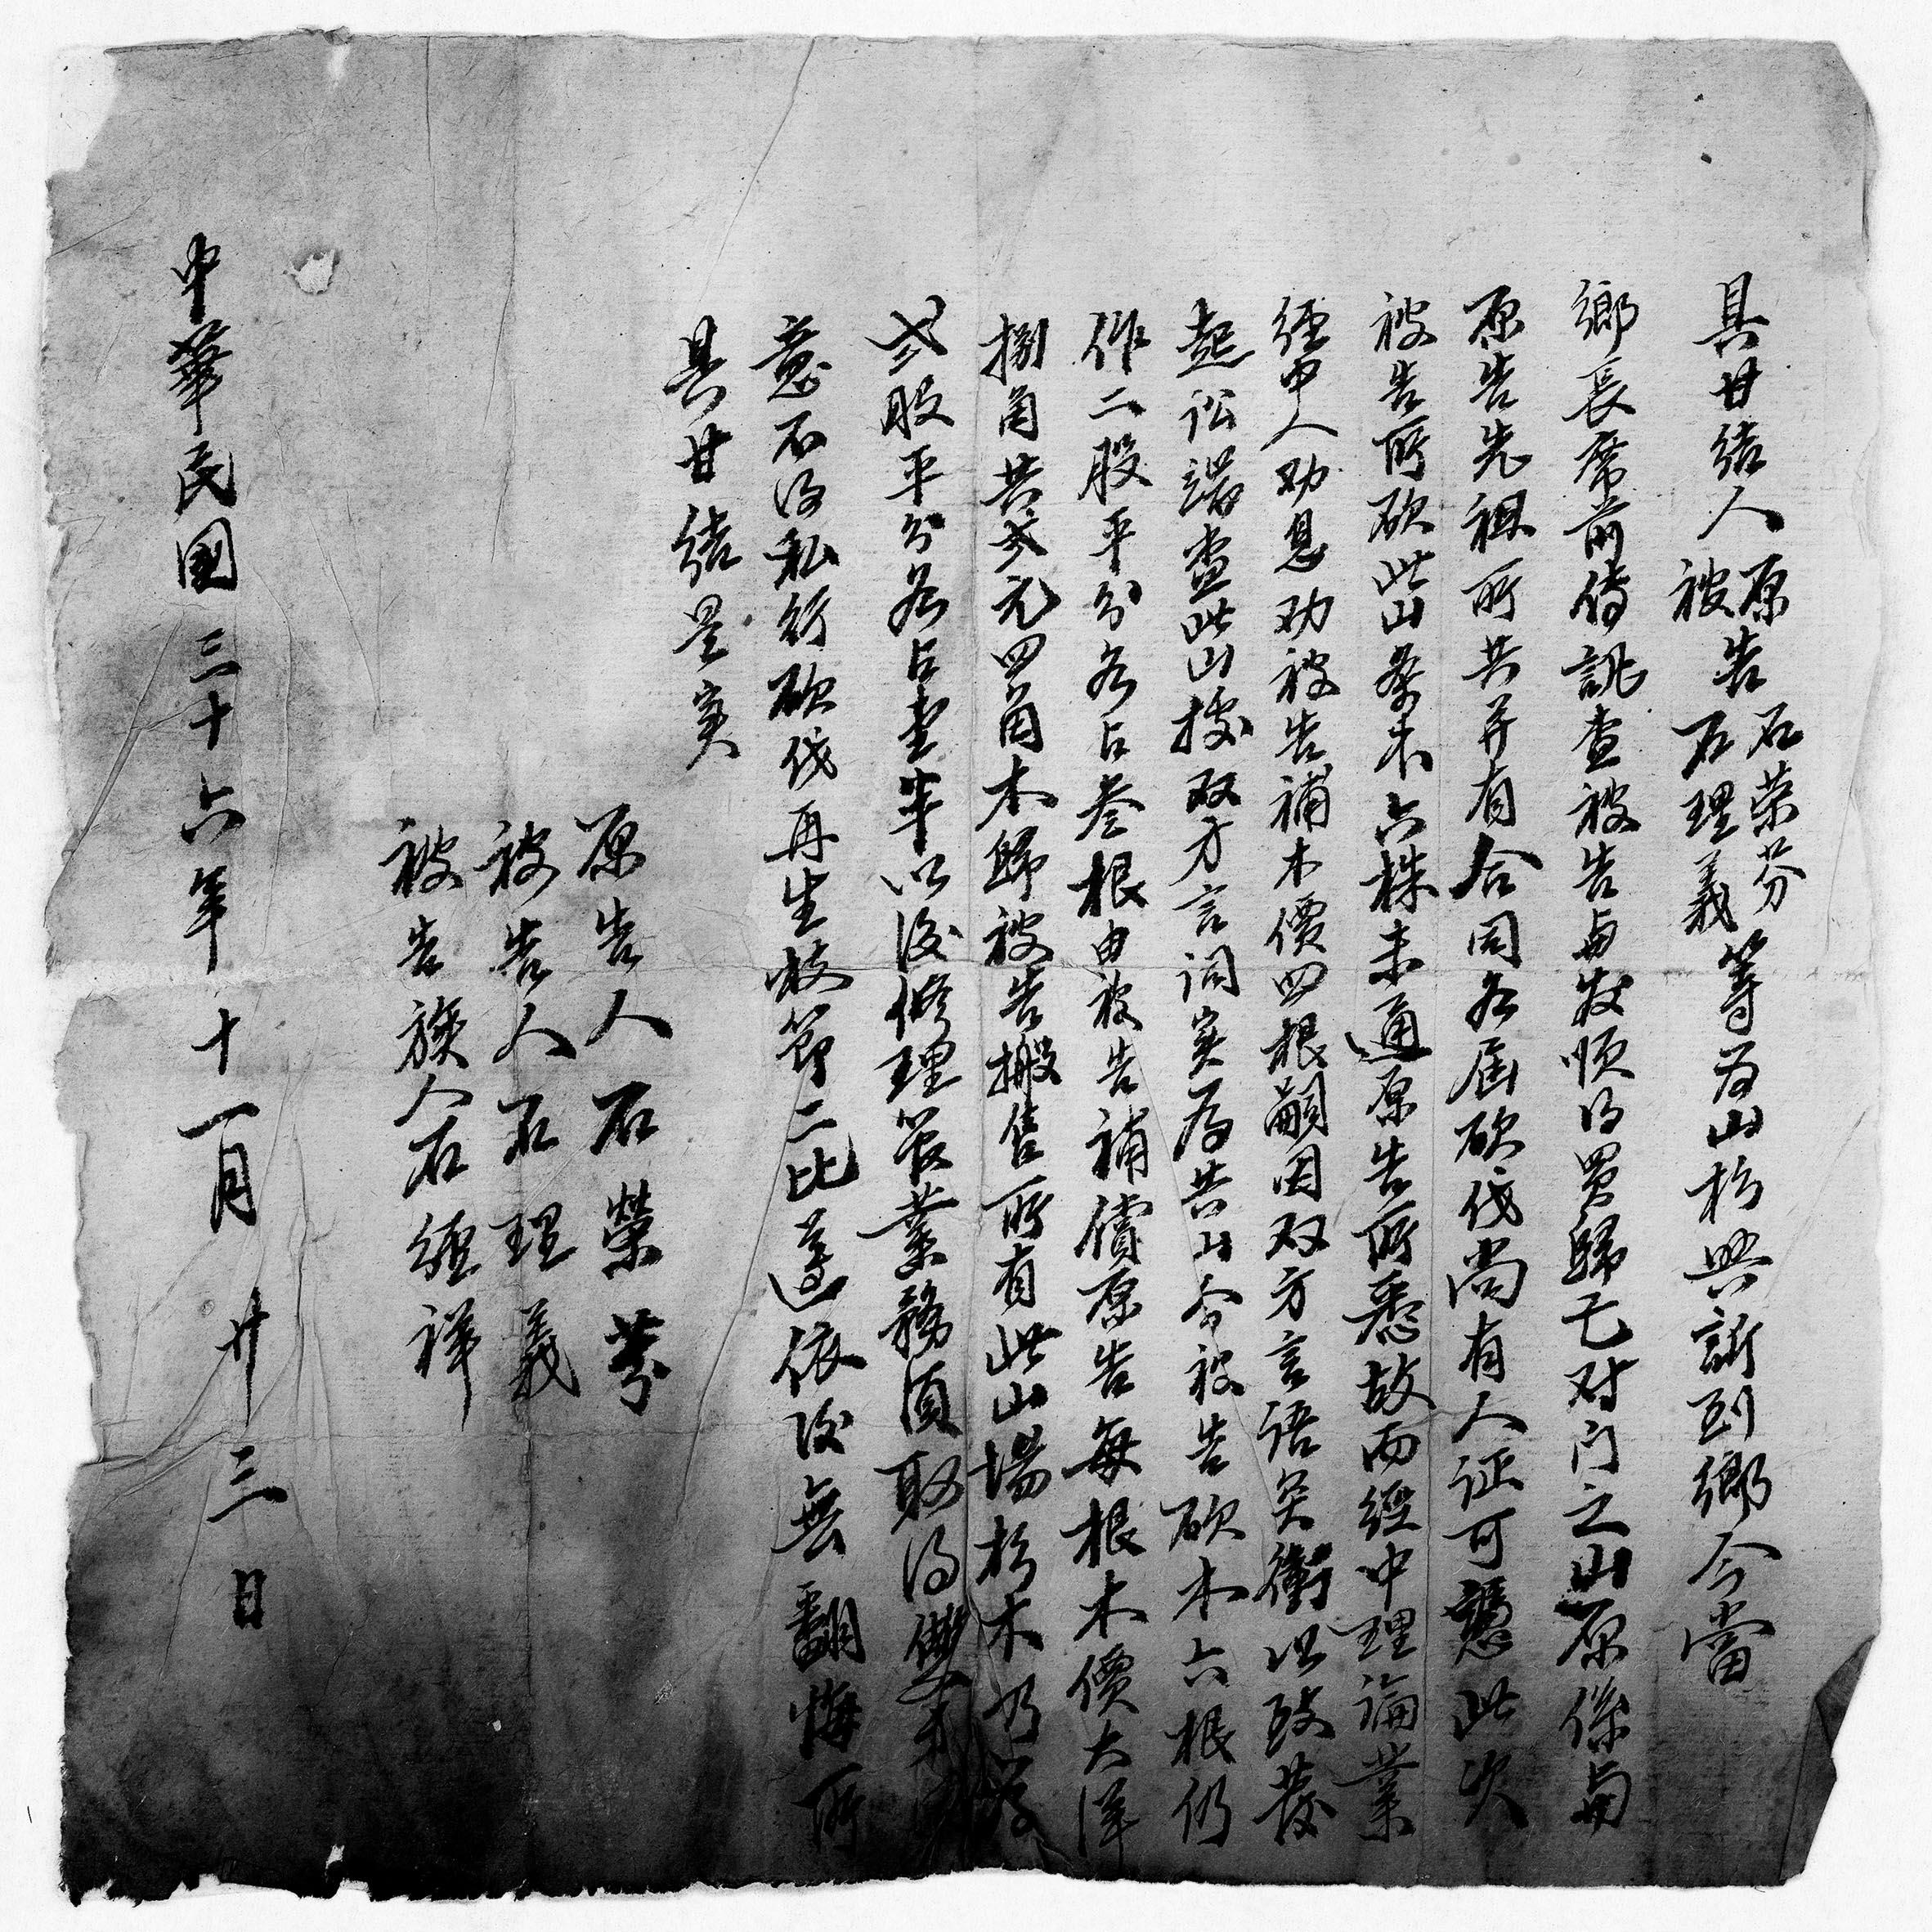 具甘結人原告石荣芬被告石理義等为山杉興訴到鄉今當
鄉長席前傳訊查被告与发順得買歸乜对门之山原係与
原告先祖所共并有合同各届砍伐尚有人证可憑此次
被告所砍此山条木六株未通原告所悉故而經中理論業
經中人劝息劝被告補木價四根嗣因双方言語突衝以致發
起訟端查此山據双方言词实为共山今被告砍木六根仍
作二股平分各占叁根由被告補償原告每根木價大洋
捌角共弍元四角木歸被告搬售所有此山場杉木乃為
弍股平分各占壹半以後修理管業務須取得雙方同
意不得私行砍伐再生枝節二比遵依後無翻悔所
具甘結是实
原告人石榮芬
被告人石理義
被告族人石經祥
中華民國三十六年十一月廿三日